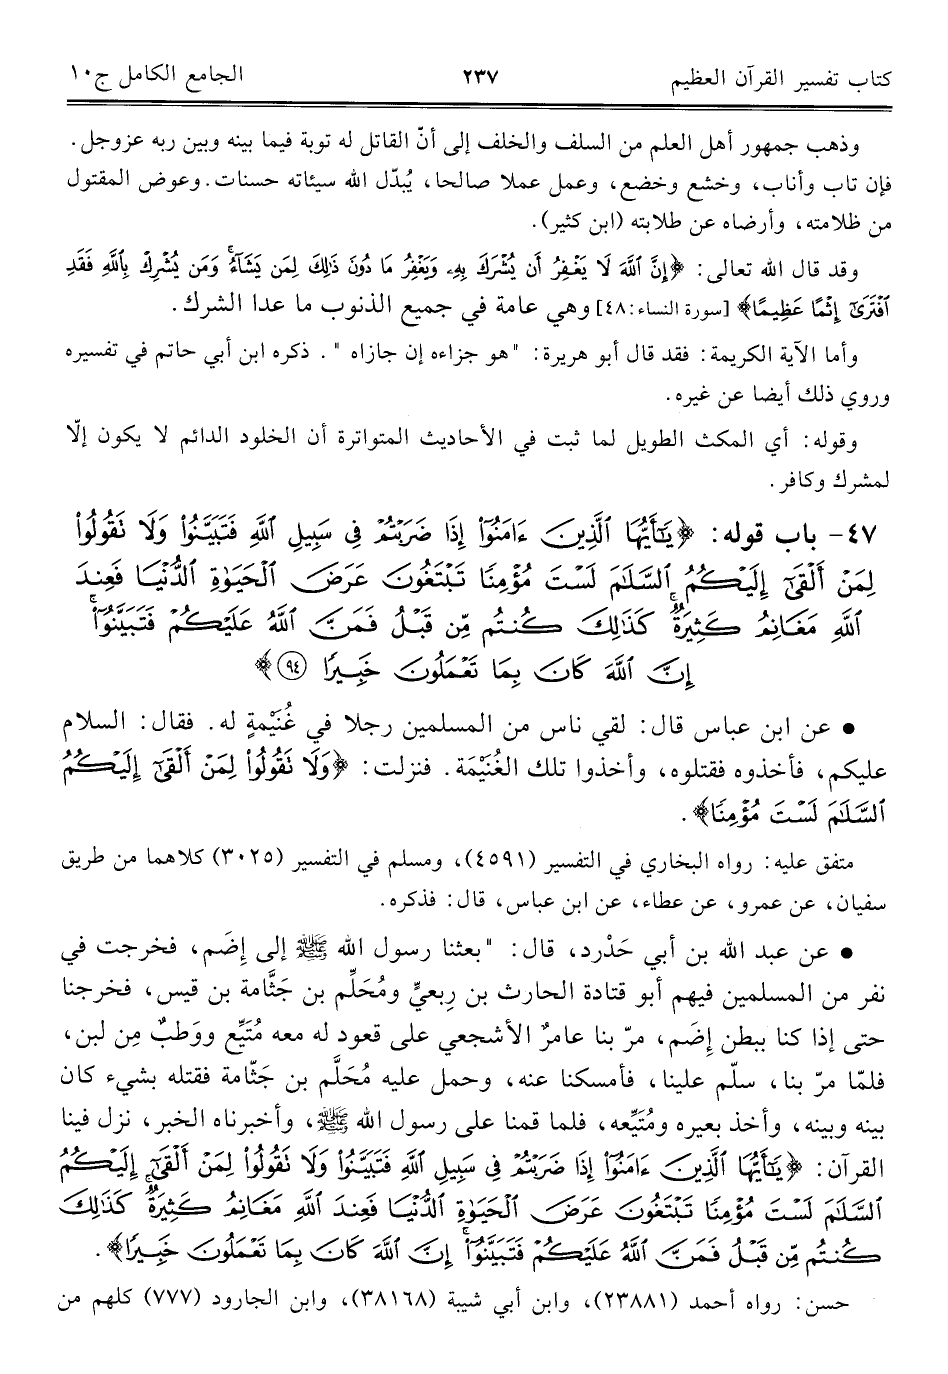 كتاب تفسير القرآن العظيم ٢٣٧ الجامع الكامل ج١٠
وذهب جمهور أهل العلم من السلف والخلف إلى أنّ القاتل له توبة فيما بينه وبين ربه عزوجل.
فإن تاب وأناب، وخشع وخضع، وعمل عملا صالحا، يُبدّل الله سيئاته حسنات. وعوض المقتول
من ظلامته، وأرضاه عن طلابته (ابن كثير).
وقد قال الله تعالى: ﴿إِنَّ ٱللَّهَ لَا يَغْفِرُ أَن يُشْرَكَ بِهِۦ وَيَغْفِرُ مَا دُونَ ذَٰلِكَ لِمَن يَشَآءُۚ وَمَن يُشْرِكْ بِٱللَّهِ فَقَدِ
ٱفْتَرَىٰٓ إِثْمًا عَظِيمًا﴾ [سورة النساء:٤٨] وهي عامة في جميع الذنوب ما عدا الشرك.
وأما الآية الكريمة: فقد قال أبو هريرة: "هو جزاءه إن جازاه ". ذكره ابن أبي حاتم في تفسيره
وروي ذلك أيضا عن غيره.
وقوله: أي المكث الطويل لما ثبت في الأحاديث المتواترة أن الخلود الدائم لا يكون إلّا
لمشرك وكافر.
٤٧- باب قوله: ﴿يَٰٓأَيُّهَا ٱلَّذِينَ ءَامَنُوٓا۟ إِذَا ضَرَبْتُمْ فِى سَبِيلِ ٱللَّهِ فَتَبَيَّنُوا۟ وَلَا تَقُولُوا۟
لِمَنْ أَلْقَىٰٓ إِلَيْكُمُ ٱلسَّلَٰمَ لَسْتَ مُؤْمِنًا تَبْتَغُونَ عَرَضَ ٱلْحَيَوٰةِ ٱلدُّنْيَا فَعِندَ
ٱللَّهِ مَغَانِمُ كَثِيرَةٌۚ كَذَٰلِكَ كُنتُم مِّن قَبْلُ فَمَنَّ ٱللَّهُ عَلَيْكُمْ فَتَبَيَّنُوٓا۟ۚ
إِنَّ ٱللَّهَ كَانَ بِمَا تَعْمَلُونَ خَبِيرًا ٩٤﴾
● عن ابن عباس قال: لقي ناس من المسلمين رجلا في غُنَيْمةٍ له. فقال: السلام
عليكم، فأخذوه فقتلوه، وأخذوا تلك الغُنَيْمَة. فنزلت: ﴿وَلَا تَقُولُوا۟ لِمَنْ أَلْقَىٰٓ إِلَيْكُمُ
ٱلسَّلَٰمَ لَسْتَ مُؤْمِنًا﴾.
متفق عليه: رواه البخاري في التفسير (٤٥٩١)، ومسلم في التفسير (٣٠٢٥) كلاهما من طريق
سفيان، عن عمرو، عن عطاء، عن ابن عباس، قال: فذكره.
● عن عبد الله بن أبي حَدْرد، قال: "بعثنا رسول الله ﷺ إلى إِضَم، فخرجت في
نفر من المسلمين فيهم أبو قتادة الحارث بن رِبعيٍّ ومُحَلِّم بن جَثَّامة بن قيس، فخرجنا
حتى إذا كنا ببطن إِضَم، مرّ بنا عامرٌ الأشجعي على قعود له معه مُتَيِّع ووَطبٌ مِن لبن،
فلمّا مرّ بنا، سلّم علينا، فأمسكنا عنه، وحمل عليه مُحَلَّم بن جَثّامة فقتله بشيء كان
بينه وبينه، وأخذ بعيره ومُتَيِّعه، فلما قمنا على رسول الله ﷺ، وأخبرناه الخبر، نزل فينا
القرآن: ﴿يَٰٓأَيُّهَا ٱلَّذِينَ ءَامَنُوٓا۟ إِذَا ضَرَبْتُمْ فِى سَبِيلِ ٱللَّهِ فَتَبَيَّنُوا۟ وَلَا تَقُولُوا۟ لِمَنْ أَلْقَىٰٓ إِلَيْكُمُ
ٱلسَّلَٰمَ لَسْتَ مُؤْمِنًا تَبْتَغُونَ عَرَضَ ٱلْحَيَوٰةِ ٱلدُّنْيَا فَعِندَ ٱللَّهِ مَغَانِمُ كَثِيرَةٌۚ كَذَٰلِكَ
كُنتُم مِّن قَبْلُ فَمَنَّ ٱللَّهُ عَلَيْكُمْ فَتَبَيَّنُوٓا۟ۚ إِنَّ ٱللَّهَ كَانَ بِمَا تَعْمَلُونَ خَبِيرًا﴾.
حسن: رواه أحمد (٢٣٨٨١)، وابن أبي شيبة (٣٨١٦٨)، وابن الجارود (٧٧٧) كلهم من